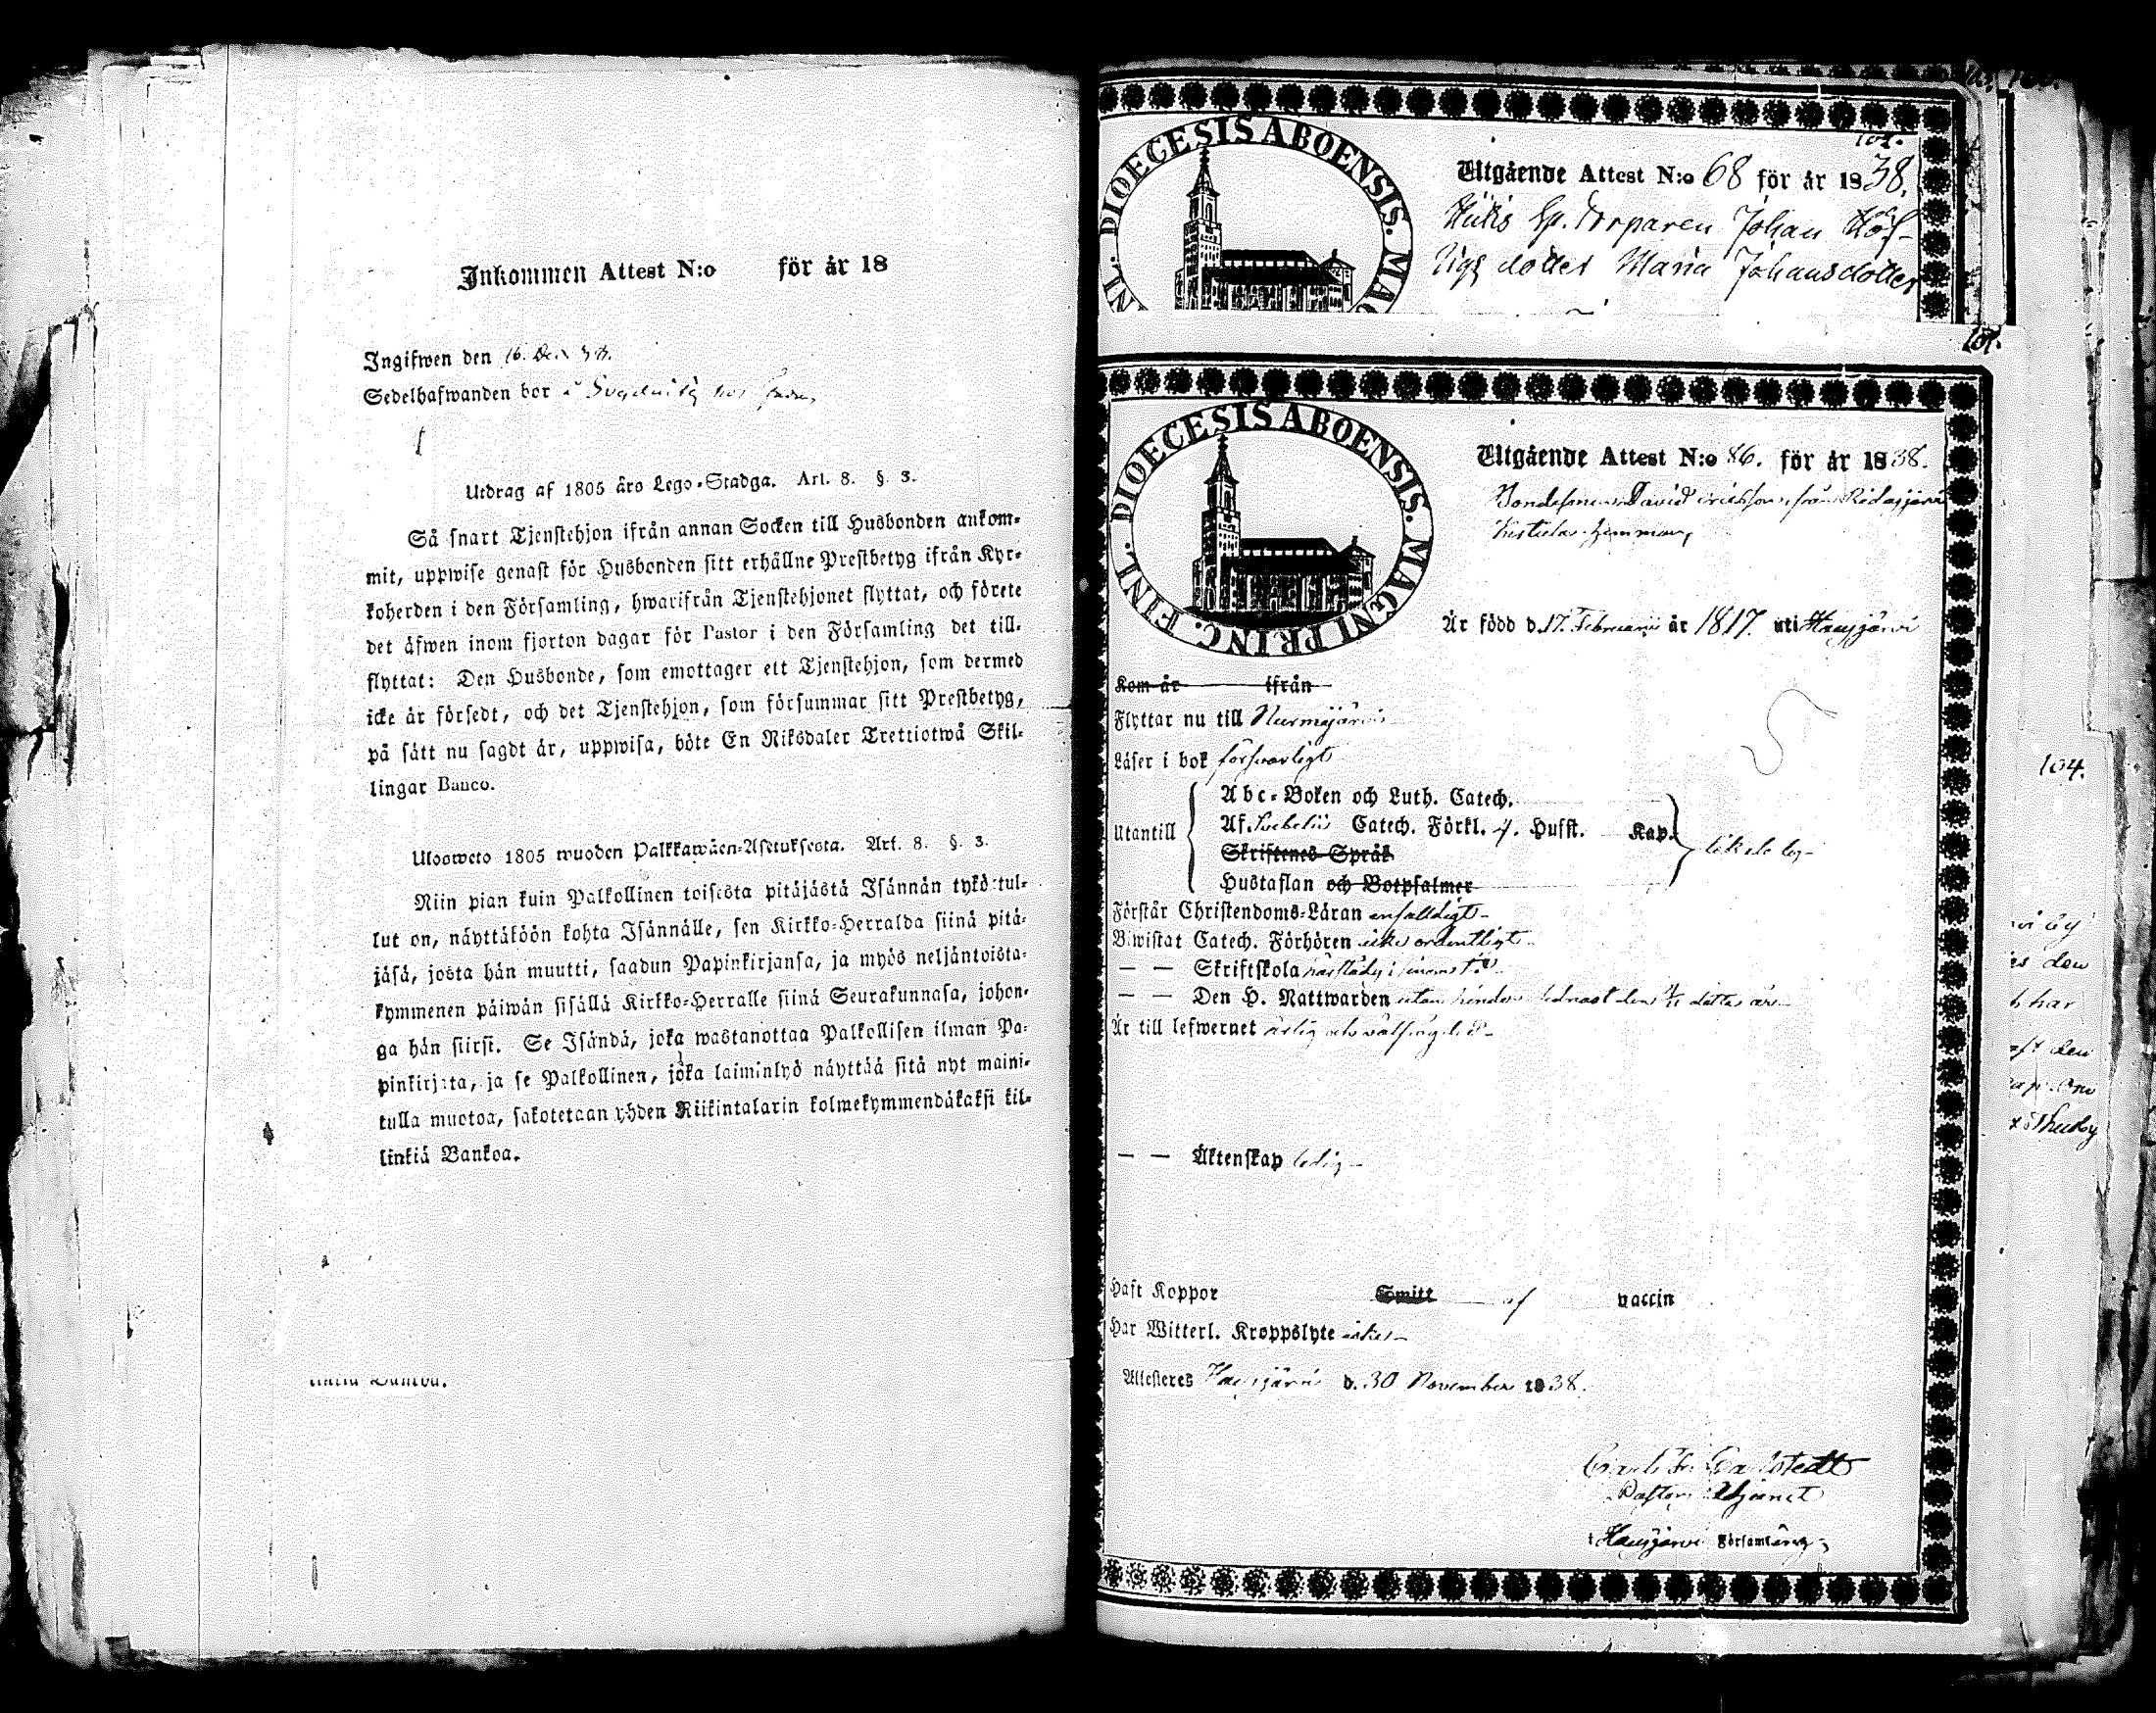 Inkommen Attest N:o för år 18
Ingifwen den 16. Dec 38.
Sedelhafwanden bor i
Utdrag af 1805 års Lego-Stadga. Art. 8. §. 3.
Så snart Tjenstehjon ifrån annan Socken till Husbonden ankom-
mit, uppwise genast för Husbonden sitt erhållne Prestbetyg ifrån Kyr-
koherden i den Församling, hwarifrån Tjenstehjonet flyttat, och förete
det äfwen inom fjorton dagar för Pastor i den Församling det till-
flyttat: Den Husbonde, som emottager ett Tjenstehjon, som dermed
icke är försedt, och det Tjenstehjon, som försummar sitt Prestbetyg,
på sätt nu sagdt är, uppwisa, böte En Riksdaler Trettiotwå Skil-
lingar Banco.
Ulosweto 1805 wuoden Palkkawäen-Asetuksesta. Art. 8. §. 3.
Niin pian kuin Palkollinen toisesta pitäjästä Isännän tykö tul-
lut on, näyttäköön kohta Isännälle, sen Kirkko-Herralda siinä pitä-
jäsä, josta hän muutti, saadun Papinkirjansa, ja myös neljäntoista-
kymmenen päiwän sisällä Kirkko-Herralle siinä Seurakunnasa, johon-
ga hän siirsi. Se Isändä, joka wastanottaa Palkollisen ilman Pa-
pinkirjata, ja se Palkollinen, joka laiminlyö näyttää sitä nyt maini-
tulla muotoa, sakotetaan yhden Riikintalarin kolmekymmendäkaksi kil-
linkiä Bankoa.
DIOECESIS ABOENSIS. MAG
NL.
Utgående Attest N:o 68 för år 1838.
Torparen Johan
dotter Maria Johansdotter
101.
DIOECESIS ABOENSIS. MAGNI PRINC. FINL.
Utgående Attest N:o 86. för år 1838.
Bondesonen David Ericsson från Ridasjärvi
Är född d. 17. Februarii år 1817. uti Hausjärvi
Kom år ifrån
Flyttar nu till Nurmijärvi
Läser i bok försvarligt
Utantill
Abc-Boken och Luth. Catech.
Af Svebelii Catech. Förkl. Husst. Kap.
Skriftenes Språk
Hustaflan och Botpsalmer
Förstår Christendoms-Läran enfaldigt
Biwistat Catech. Förhören icke ordentligt
— — Skriftskola
— — Den H. Nattwarden utan hinder sednast den detta år
Är till lefwernet ärlig och välfrägdad
— — Äktenskap ledig
Haft Koppor Smitt af vaccin
Har Witterl. Kroppslyte icke
Attesteres Hausjärvi d. 30 November 1838.
Pastors Adjunct
i Hausjärvi Församling
104.